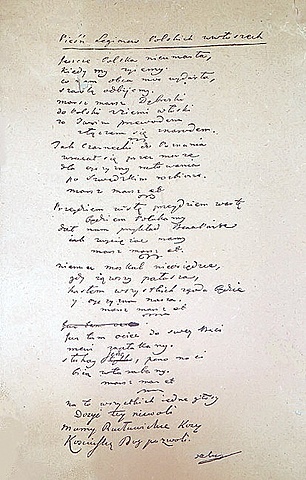 Pieśń Legionów Polskich we Włoszech
Jeszcze Polska nie umarła,
kiedy my żyjemy
co nam obca moc wydarła,
szablą odbijemy.
marsz marsz Dąbrowski
do Polski z ziemi włoski
za Twoim przewodem
złączem się z narodem.
Jak Czarnecki do Poznania
wracał się przez morze
dla ojczyzny ratowania
po Szwedzkim rozbiorze.
marsz marsz etc
Przejdziem Wisłę przejdziem Wartę
będziem Polakamy
dał nam przykład Bonaparte
jak zwyciężać mamy
marsz marsz etc
niemiec moskal nie osiędzie,
gdy jąwszy pałasza,
hasłem wszystkich zgoda będzie
y ojczyzna nasza.
marsz marsz etc
już tam ociec do swej Basi
mówi zapłakany
słuchaj jeno, pono nasi
biją w tarabany.
marsz marsz etc
na to wszystkich jedne głosy
Dosyć tej niewoli
mamy Racławickie Kosy
Kościuszkę Bóg pozwoli.